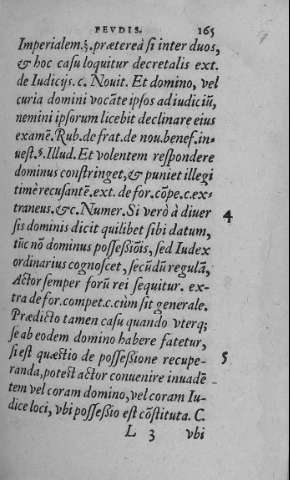 FEVDIS. 165
Imperialem.§. præterea si inter duos,
& hoc casu loquitur decretalis ext.
de Iudicijs. c. Nouit. Et domino, vel
curia domini vocāte ipsos ad iudiciū,
nemini ipsorum licebit declinare eius
examē. Rub. de frat. de nou. benef. in-
uest. §. Illud. Et volentem respōdere
dominus constringet, & puniet illegi
timè recusantē. ext. de for. cōpe. c. ex-
traneus. & c. Numer. Si verò à diuer 4
sis dominis dicit quilibet sibi datum,
tūc nō dominus possessiōis, sed Iudex
ordinarius cognoscet, secūdū regulā,
Actor semper forū rei sequitur. ex-
tra de for. compet. c. cùm sit generale.
Prædicto tamen casu quando vterq;
se ab eodem domino habere fatetur,
si est quæstio de possessione recupe- 5
randa, potest actor conuenire inuadē
tem vel coram domino, vel coram Iu-
dice loci, vbi possessio est cōstituta. C.
L 3 vbi